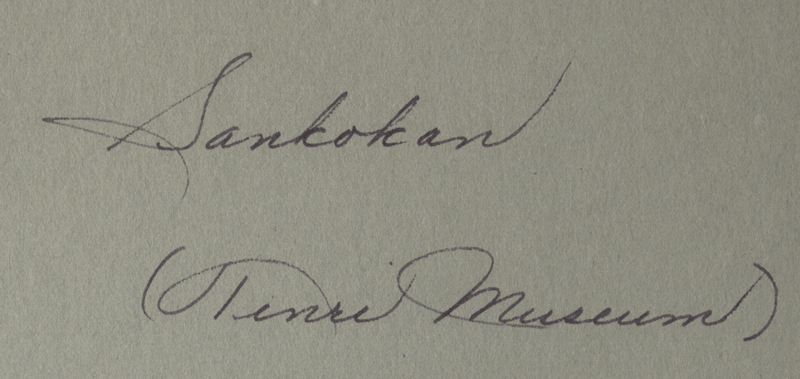 Sankokan
(Tenri Museum)